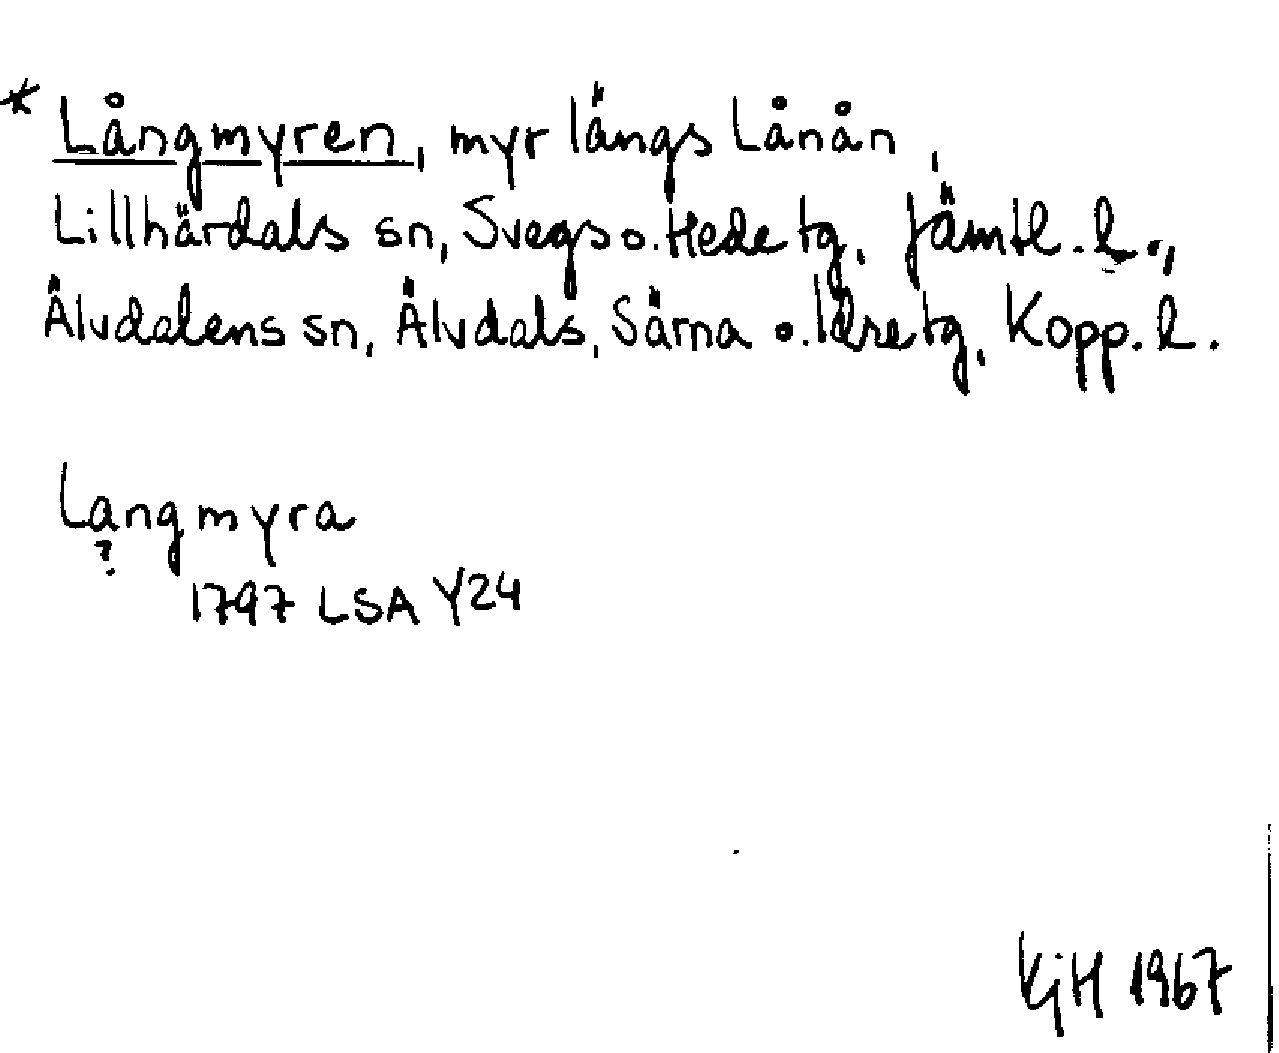 * Långmyren, myr längs Lånån,
Lillhärdals sn, Svegs o. Hede tg, Jämtl. l.,
Älvdalens sn, Älvdals, Särna o. Idre tg, Kopp. l.
Langmyra
?
1797 LSA Y24
KjH 1967